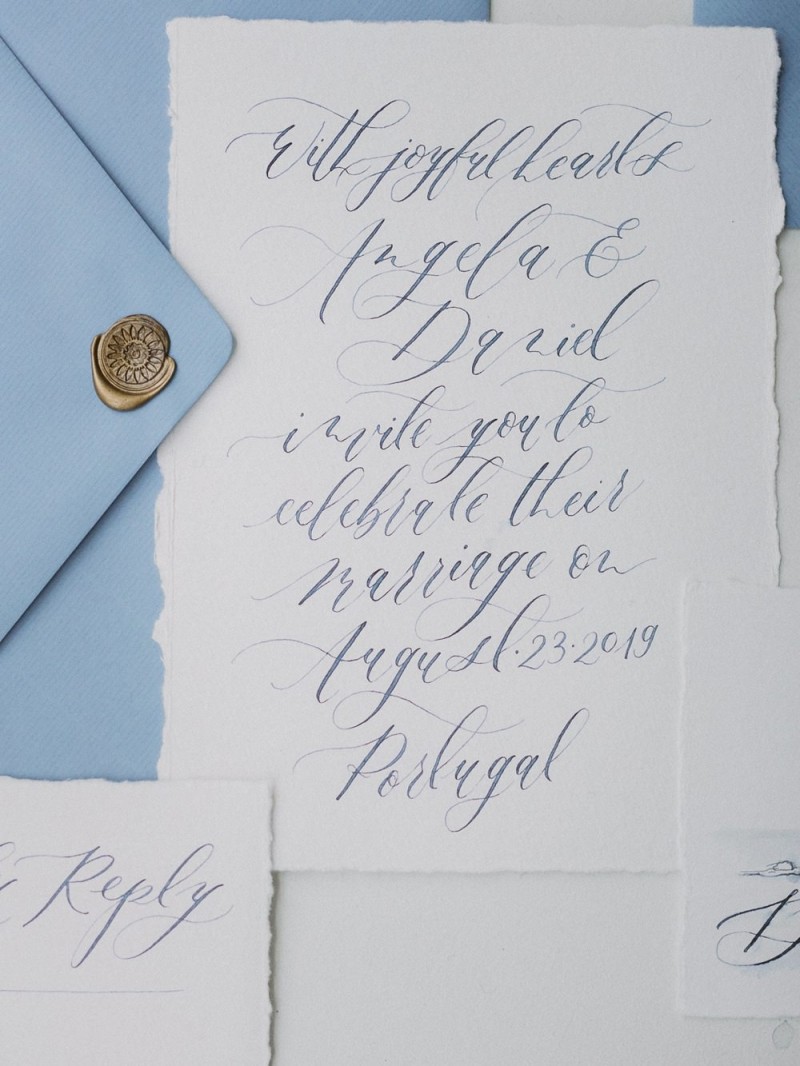 With joyful hearts
Angela &
Daniel
invite you to
celebrate their
marriage on
August·23·2019
Portugal
Reply